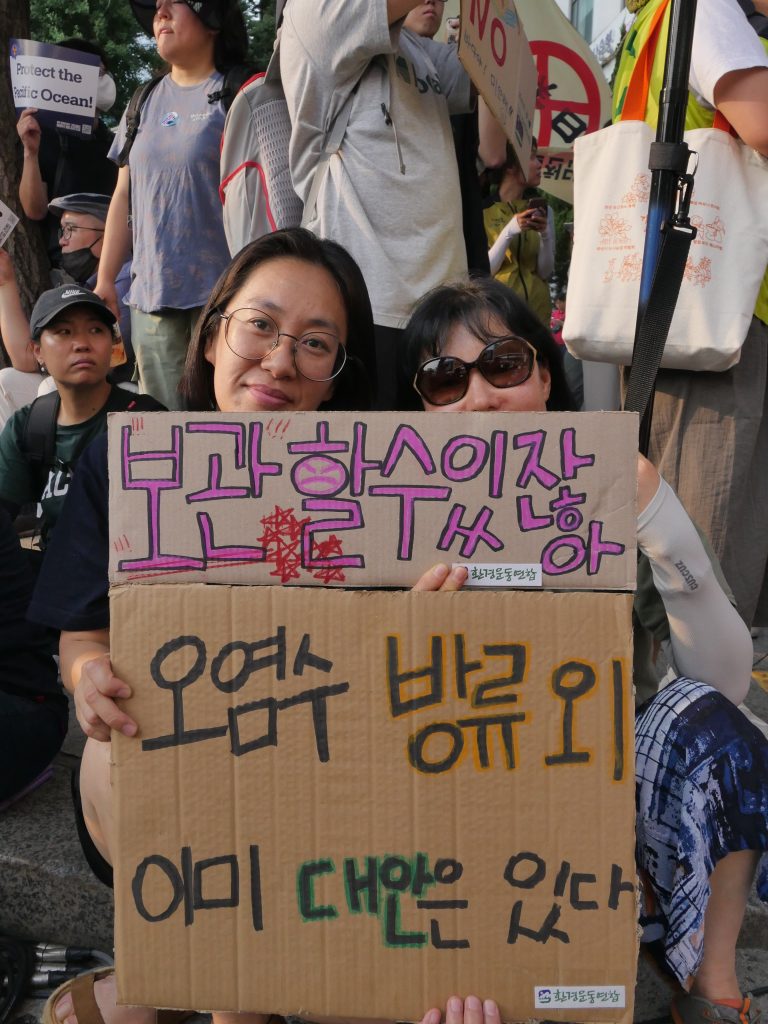 Protect the
Pacific Ocean!
NO
보관할수있잖아
환경운동연합
CUSCUZ
오염수 방류 외
이미 대안은 있다
환경운동연합